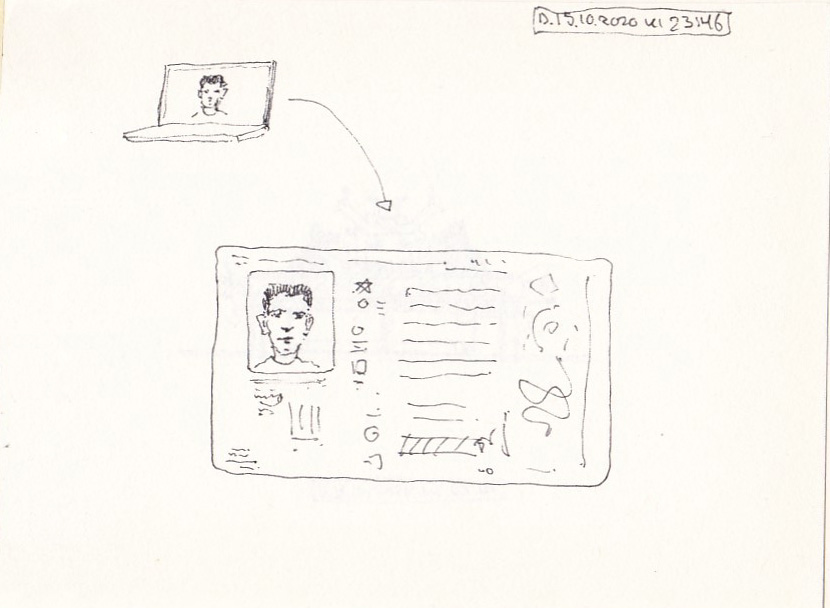 D.15.10.2020 kl 23:46